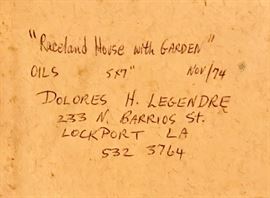 "Raceland House with GARDEN"
OILS 5x7" Nov/74
DOLORES H. LEGENDRE
233 N. BARRIOS St.
LOCKPORT LA
532 3764